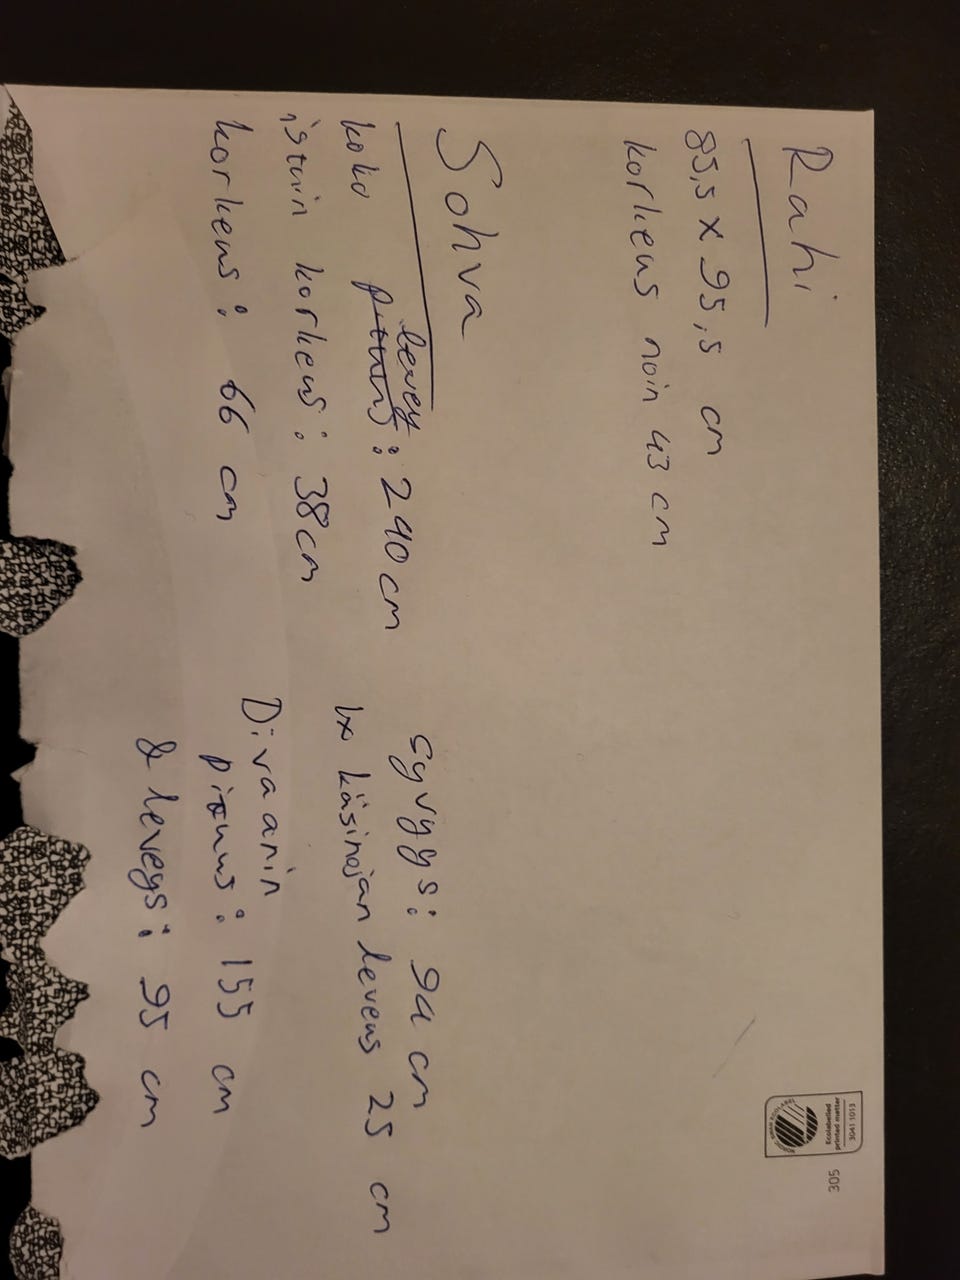 Rahi
85,5 x 95,5 cm
korkeus noin 43 cm
Sohva
koko pituus levey : 240 cm
istuin korkeus : 38cm
korkeus : 66 cm
syvyys : 94 cm
1x käsinojan leveus 25 cm
Divaanin
pituus : 155 cm
& leveys : 95 cm
Ecolabelled
printed matter
3041 1013
305